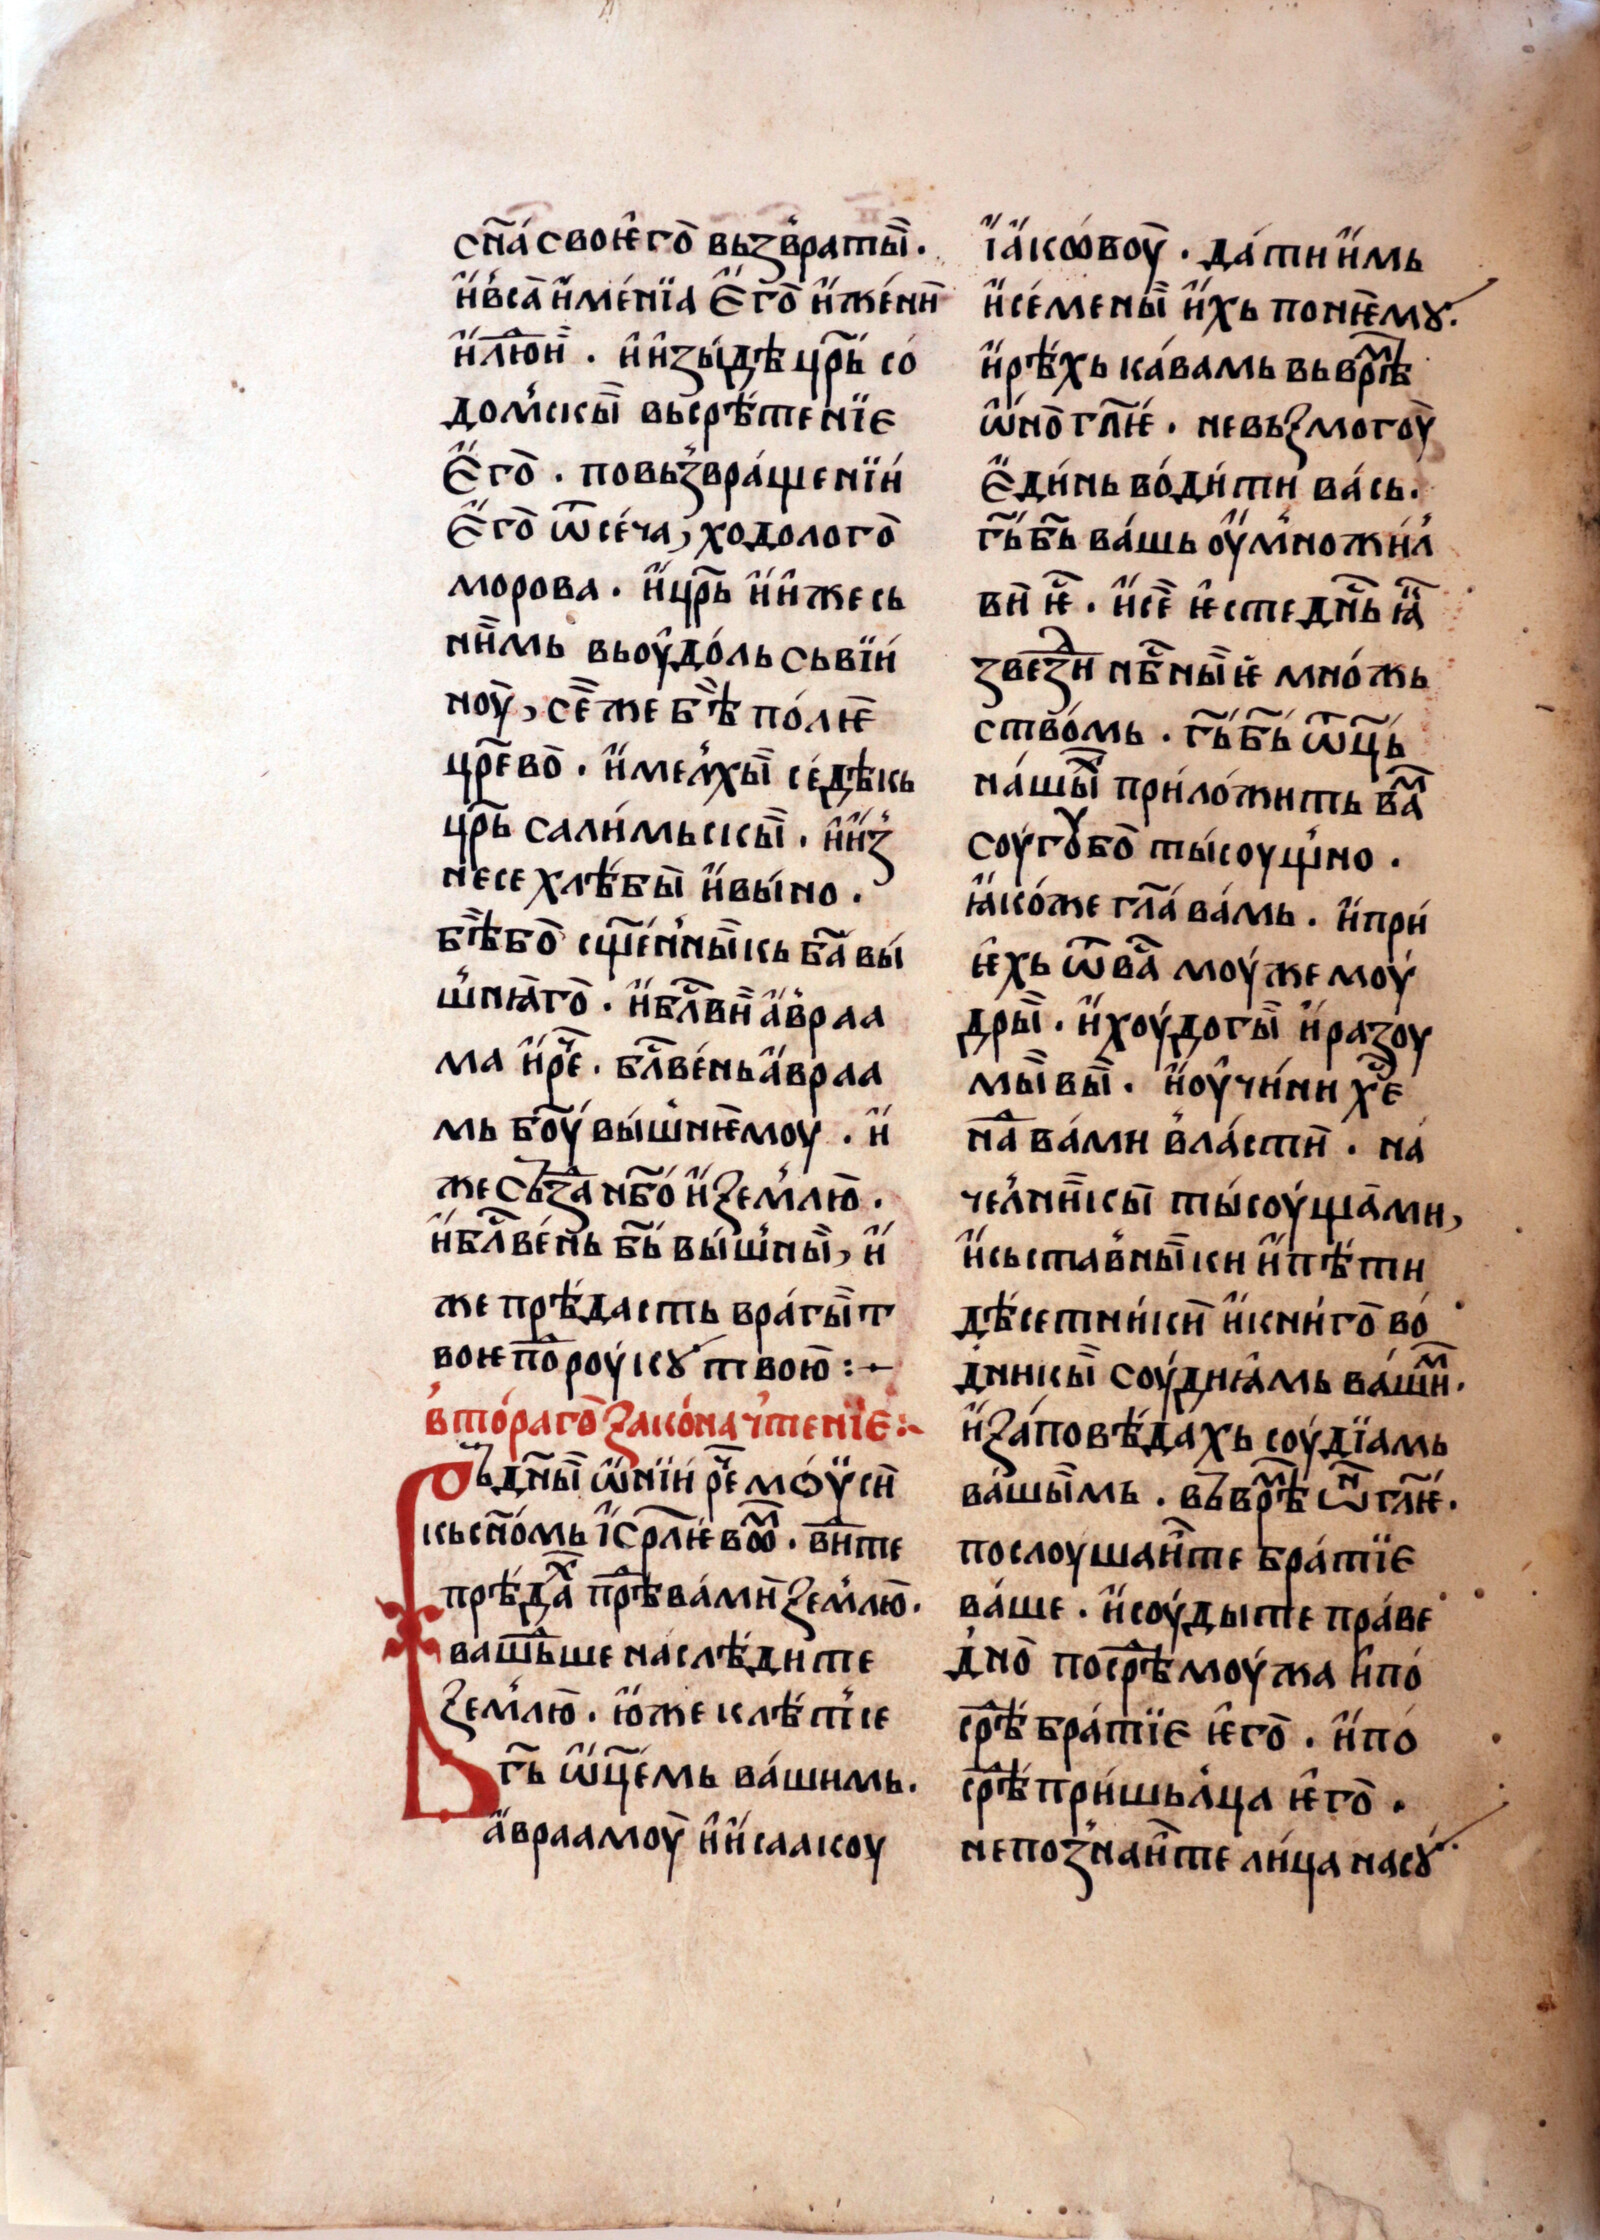 сн҃а своѥго възвраты.
и҆ вса и҆менїа Ѥго и҆ жени
и҆ лю̑и. и҆ изыдѣ цр҃ь со
домскы въсрѣтенїе
Ѥго. по възвращенїи
Ѥго ѿ сеча, ходолого
морова. и҆ цр҃ь и҆ иже съ
нимь въ оудоль съвїи
ноу, се же бѣ полѥ
цр҃ево. и҆ мелхы седѣкь
цр҃ь салимьскы. и҆ из
несе хлѣбы и҆ выно.
бѣ бо сщ҃енныкь ба҃ вы
шнꙗго. и҆ блв҃и а҆враа
ма и҆ рͨе. блв҃ень а҆враа
мь бо҃у вышнѥмоу. и҆
же създа нб҃о и҆ землю.
и҆ блв҃ень бь҃ вышны, и҆
же прѣдасть врагы т
воѥ по роукꙋ твою :–
втораго закона чтенїе :~
Вь дн҃ы ѡ҆нїи рͨе мѡѵси
кь сн҃омь і҆ср҃лѥвѡⷨ. вите
прѣдаⷯ прѣ вами землю.
вашьше наслѣдите
землю. ю҆же клѣтсе
гь҃ ѡ҆ц҃емь вашимь.
а҆враамоу и҆ исаакоу
і҆а҆кѡвоу. дати и҆мь
и҆ семены и҆хь по нѥмꙋ.
и҆ рѣхь ка вамь въ врⷨѣ
ѡ҆но гл҃ѥ. не възмогоу
Ѥдинь водити вась.
гь҃ бь҃ вашь оу҆множил
ви ѥͨ. и҆ се ѥсте дн҃ь ꙗⷦ
звезⷣи нбͨныѥ множь
ствомь. гь҃ бь҃ ѿц҃ь
нашыⷯ приложить ваⷨ
соугꙋбо тысоущно.
ꙗ҆коже гл҃а вамь. и҆ при
ѥхь ѿ ваͨ моуже моу
дры. и҆ хоудогы и҆ разоу
мывы. и҆ оучини хⷤе
на вами власти. на
челникы тысоущами,
и҆ съставныки и҆ пѣти
дѣсетники и҆ книго во
дникы соудиꙗмь вашиⷨ.
и҆ заповѣдахь соудїамь
вашымь. въ врⷨѣ ѡⷩ гл҃ѥ.
послоушаите братїе
ваше. и҆ соудыте праве
дно посрⷣѣ моужа и҆ по
срⷣѣ братїе ѥго. и҆ по
срⷣѣ пришьлца ѥго.
не познаите лица на сꙋ